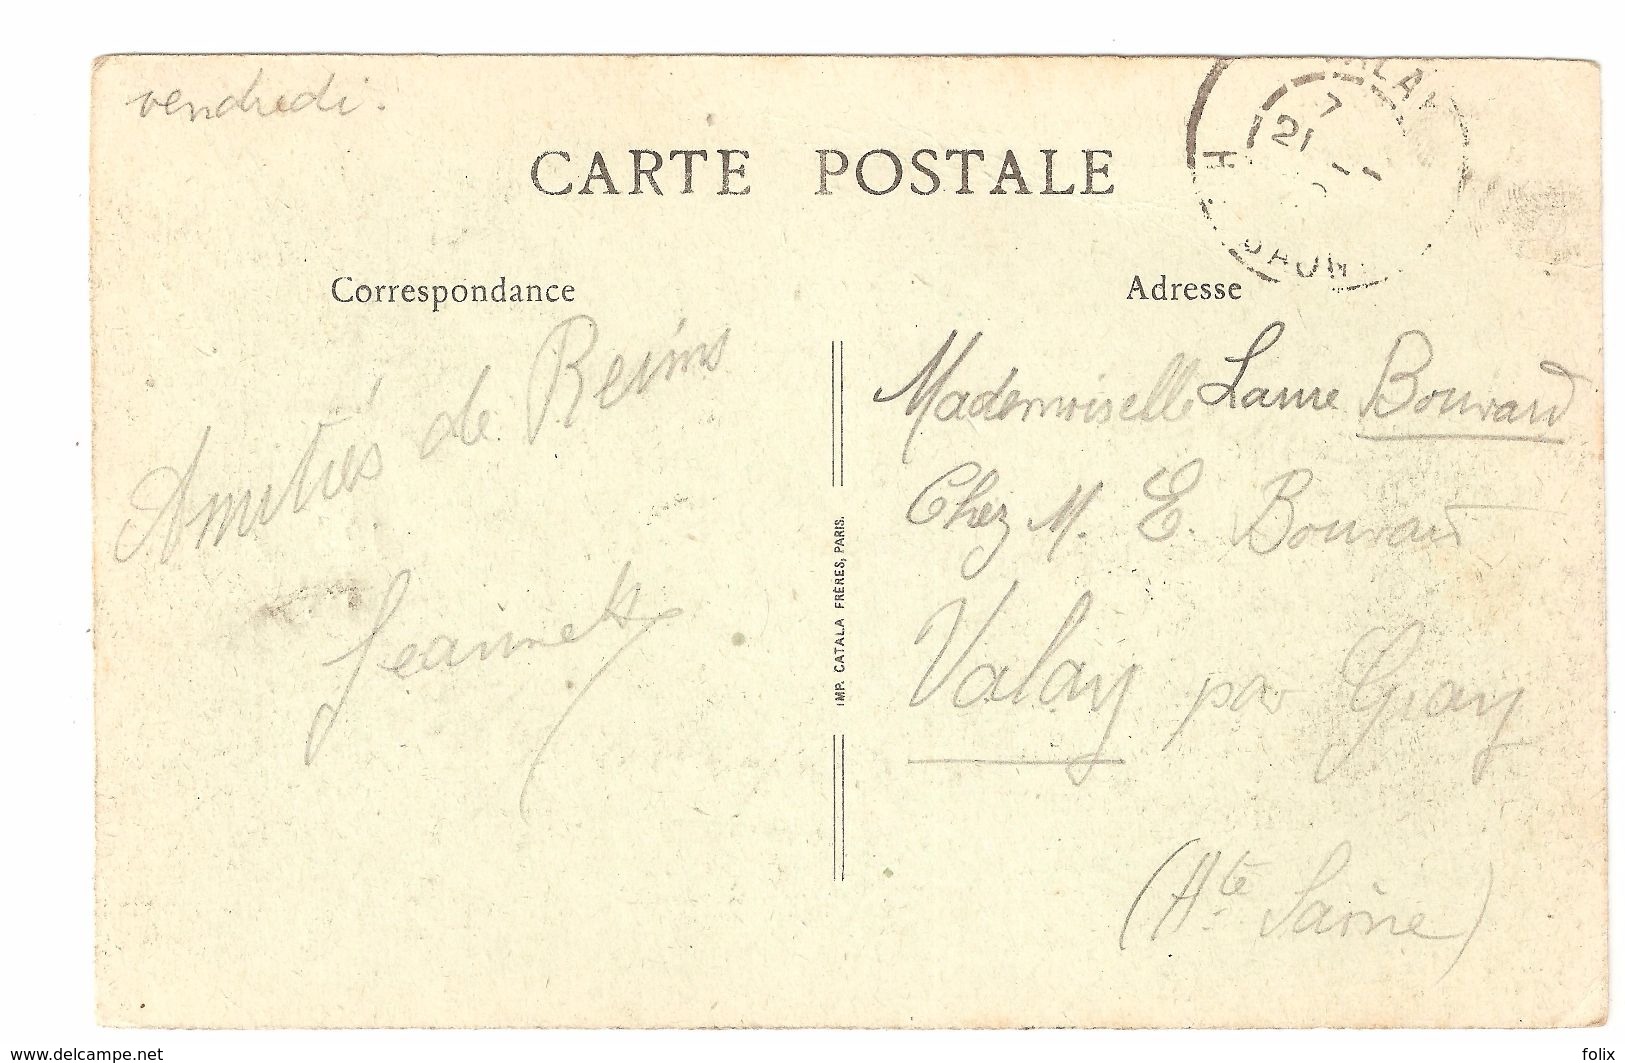 vendredi.
CARTE POSTALE
21
7
Correspondance
Adresse
Amitiés de Reims
Jeannette
IMP. CATALA FRÈRES, PARIS.
Mademoiselle Laure Bouvard
Chez M. E. Bouvard
Valay par Gray
(Hte Saône)
www.delcampe.net
folix